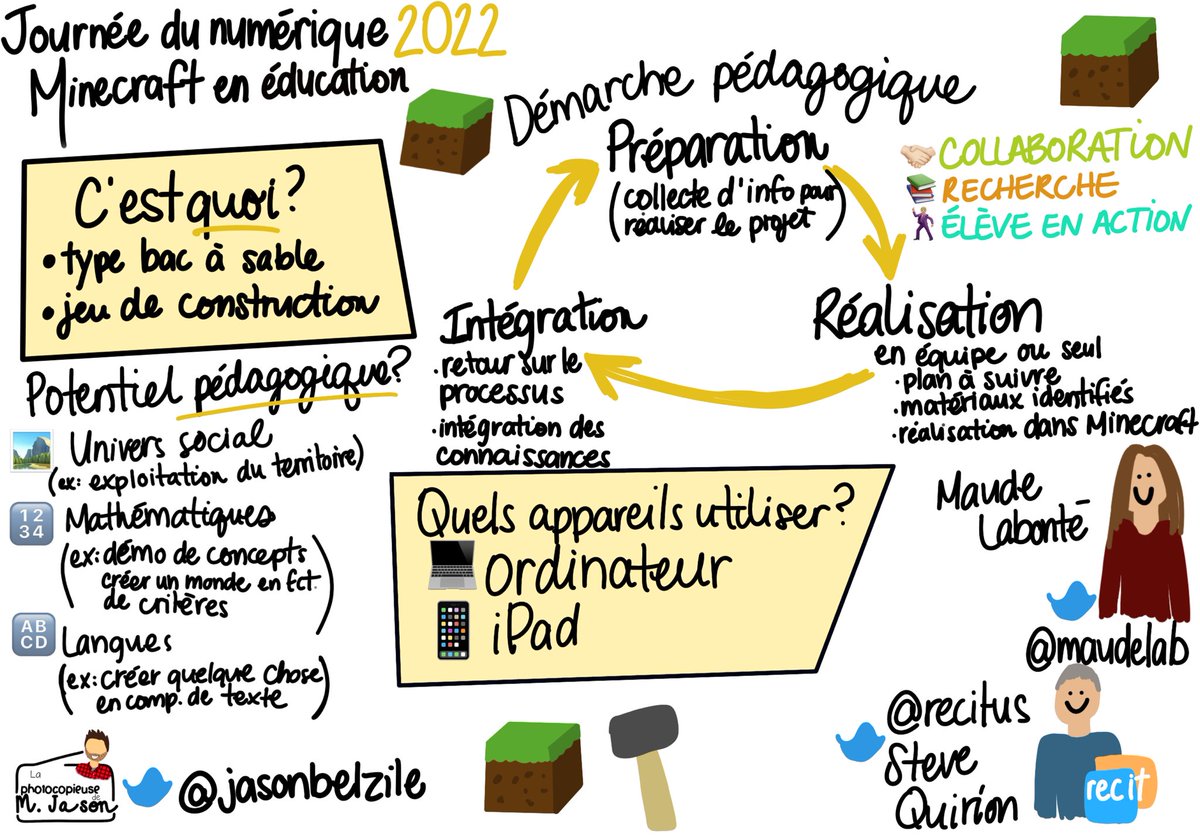 Journée du numérique 2022
Minecraft en éducation
C'est quoi?
• type bac à sable
• jeu de construction
Potentiel pédagogique?
Univers social
(ex: exploitation du territoire)
1 2
3 4
Mathématiques
(ex: démo de concepts
créer un monde en fct.
de critères)
AB
CD
Langues
(ex: créer quelque chose
en comp. de texte)
Démarche pédagogique
Préparation
(collecte d'info pour
réaliser le projet)
COLLABORATION
RECHERCHE
ÉLÈVE EN ACTION
Réalisation
en équipe ou seul
• plan à suivre
• matériaux identifiés
• réalisation dans Minecraft
Intégration
• retour sur le
processus
• intégration des
connaissances
Quels appareils utiliser?
Ordinateur
iPad
Maude
Labonté
@maudelab
@recitus
Steve
Quirion
recit
La
photocopieuse
de
M. Jason
@jasonbelzile